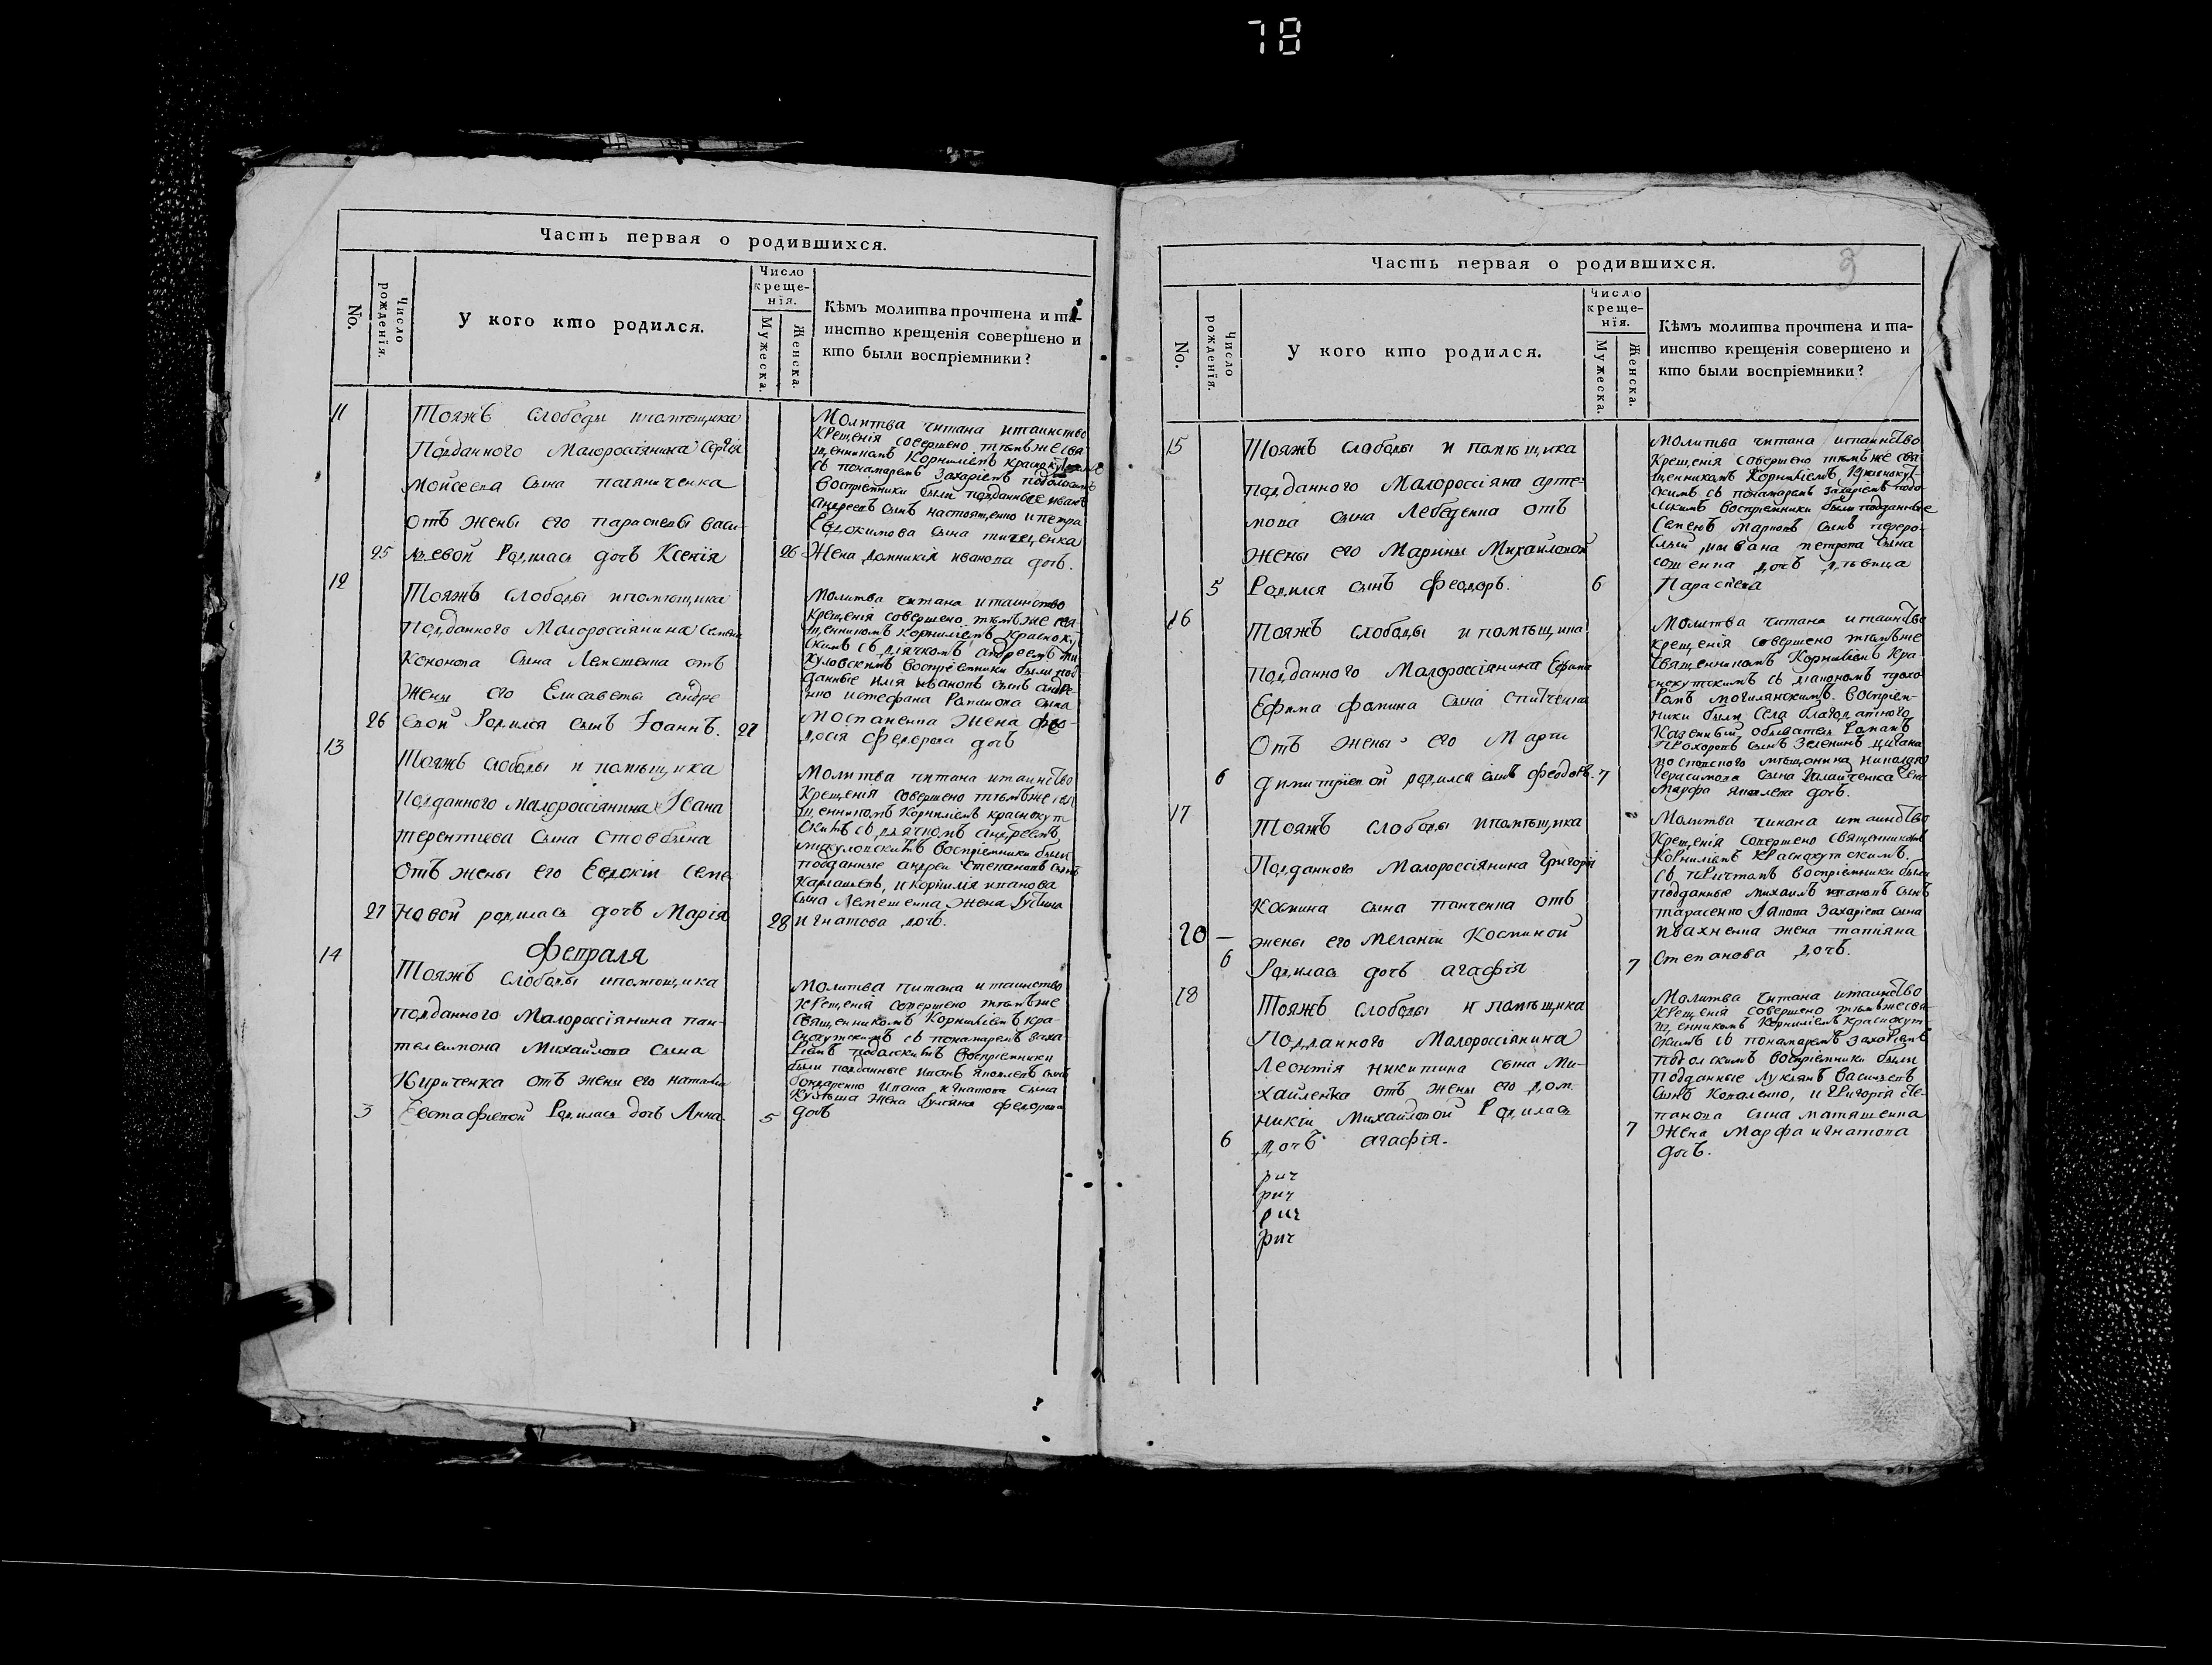 78
Часть первая о родившихся.
No.
Число рожденїя.
У кого кто родился.
Число
креще-
нїя.
Мужеска.
Женска.
Кѣмъ молитва прочтена и та-
инство крещенія совершено и
кто были воспріемники?
11
Тояжъ слободы ипомѣщика
Подданного Малороссіянина Сергія
Моисеева Сына
отъ жены его параскевы васи-
25 лѣевой Родилась дочь Ксенія
26
Молитва читана итаинство
Крещенія совершено тѣмъже свя-
щенникомъ Корниліемъ краснокутскимъ
съ понамаремъ Захаріемъ подолскимъ
Воспріемники были подданные иванъ
андреевъ сынъ настоященко ипетра
Евдокимова сына
Жена домникія иванова дочь.
12
Тояжъ слободы ипомѣщика
подданного Малороссіянина Семена
Кононова Сына Лемешенка отъ
Жены его Елисаветы андре
26 евой Родился сынъ Іоаннъ. 27
Молитва читана итаинство
крещенія совершено тѣмъже свя-
щенникомъ Корниліемъ краснокут
скимъ съ дячкомъ андреемъ ми
куловскимъ воспріемники были под
данные илія ивановъ сынъ
истефана Романова сына
Моспаненка жена фео-
досія федорова дочь
13
Тояжъ слободы и помѣщика
Подданного малороссіянина Іоана
терентиева Сына Стовбына
отъ жены его Евдокіи семе
27 новой родилась дочь Марія
28
Молитва читана итаинство
Крещенія совершено тѣмъже свя
щенникомъ Корниліемъ краснокут
скимъ съ дячкомъ андреемъ
микуловскимъ воспріемники были
подданные андреи Степановъ сынъ
Карлашевъ, икорнилія иванова
сына Лемешенка жена
игнатова дочь.
Февраля
14
Тояжъ слободы ипомѣщика
подданного Малороссіянина пан-
телеимона Михаилова Сына
Кириченка отъ жены его наталіи
3 Евстафиевой Родилась дочь Анна.
5
Молитва читана итаинство
крещенія совершено тѣмъже
Священникомъ Корниліемъ кра-
снокутскимъ съ понамаремъ заха
ріемъ подолскимъ воспріемники
были подданные иванъ яковлевъ сынъ
бондаренко ивана игнатова сына
жена Уліяна федорова
дочь
Часть первая о родившихся.
3
No.
Число рожденїя.
У кого кто родился.
Число
креще-
нїя.
Мужеска.
Женска.
Кѣмъ молитва прочтена и та-
инство крещенія совершено и
кто были воспріемники?
15
Тояжъ слободы и помѣщика
подданного Малороссіяна арте-
мова сына Лебеденка отъ
жены его Марины Михаиловой
5 Родился сынъ Феодоръ. 6
Молитва читана итаинство
Крещенія совершено тѣмъже свя-
щенникомъ Корниліемъ Краснокут-
скимъ съ понамаремъ захаріемъ подо
лскимъ воспріемники были подданные
Семенъ Марковъ сынъ
ивана петрова сына
дочь дѣвица
Параскева
16
Тояжъ слободы и помѣщика
подданного Малороссіянина Ефима
Ефима фомина сына
Отъ жены его Марѳи
6 димитріевой родился сынъ феодоръ. 7
Молитва читана итаинство
крещенія совершено тѣмъже
Священникомъ Корниліемъ Кра-
снокутскимъ съ діакономъ прохо
Ромъ могилянскимъ. воспріем-
ники были Села благодатного
Казенный обыватель Романъ
Прохоровъ сынъ Зеленинъ
мѣщанина николая
Герасимова сына жена
Марфа яковлева дочь.
17
Тояжъ слободы ипомѣщика
Подданного Малороссіянина Григорія
Космина сына панченка отъ
20 — жены его Меланіи Косминой
6 Родилась дочь агафія
7
Молитва читана итаинство
Крещенія совершено священникомъ
Корниліемъ краснокутскимъ.
съ причтомъ воспріемники были
подданные михаилъ ивановъ сынъ
тарасенко Іякова Захаріева сына
ивахненка жена татіяна
Степанова дочь.
18
Тояжъ слободы и помѣщика
Подданного Малороссіянина
Леонтія никитина сына Ми-
хайленка отъ жены его дом
никіи Михаиловой Родилась
6 дочь агафія.
7
Молитва читана итаинство
Крещенія совершено тѣмъже свя-
щенникомъ Корниліемъ краснокут
скимъ съ понамаремъ захаріемъ
подолскимъ воспріемники были
подданные Лукіянъ Василіевъ
сынъ Коваленко, и Григорія Сте-
панова сына матяшенка
жена Марфа игнатова
дочь.
рич
рич
рич
рич